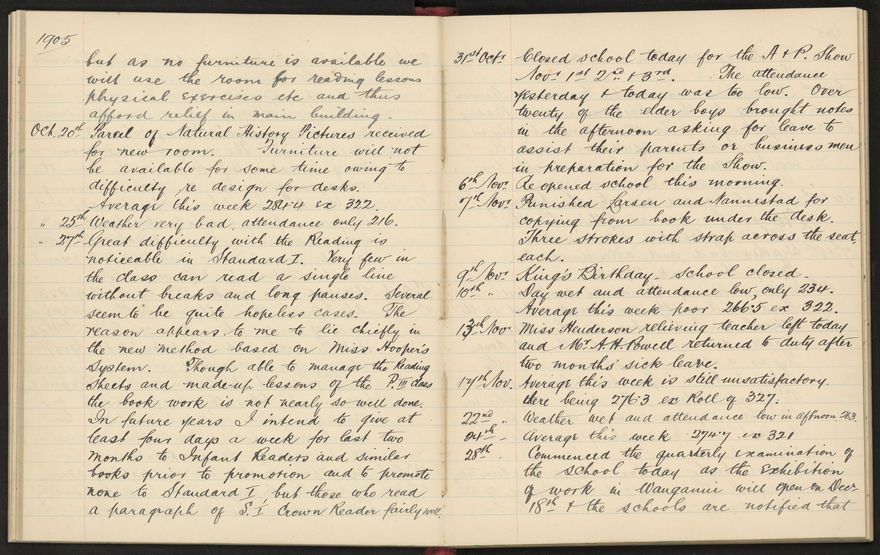 1905
but as no furniture is available we
will use the room for reading lessons
physical exercises etc and thus
afford relief in main building.
Oct. 20th Parcel of Natural History Pictures received
for new room. Furniture will not
be available for some time owing to
difficulty re design for desks.
Average this week 284.4 ex 322
" 25th Weather very bad, attendance only 216.
" 27th Great difficulty with the Reading is
noticeable in Standard I. Very few in
the class can read a single line
without breaks and long pauses. Several
seem to be quite hopeless cases. The
reason appears to me to lie chiefly in
the new method based on Miss Hooper's
System. Though able to manage the Reading
Sheets and made-up lessons of the P. III class
the book work is not nearly so well done.
In future years I intend to give at
least four days a week for last two
months to Infant Readers and similar
books prior to promotion and to promote
none to Standard I, but those who read
a paragraph of S. I Crown Reader fairly well.
31st Octr Closed school today for the A & P. Show
Novr 1st 2nd & 3rd. The attendance
yesterday & today was too low. Over
twenty of the elder boys brought notes
in the afternoon asking for leave to
assist their parents or business men
in preparation for the Show.
6th Novr Re opened school this morning.
7th Novr Punished Larsen and Nannestad for
copying from book under the desk.
Three strokes with strap across the seat,
each.
9th Novr King's Birthday. School closed.
10th " Day wet and attendance low, only 234.
Average this week poor 266.5 ex 322.
13th Novr Miss Henderson relieving teacher left today
and Mr. A.H. Powell returned to duty after
two months' sick leave.
17th Nov. Average this week is still unsatisfactory.
there being 276.3 ex Roll of 327.
22nd " Weather wet and attendance low in aftnoon 263.
24th - Average this week 274.7 ex 321
28th - Commenced the quarterly examination of
the school today as the Exhibition
of work in Wanganui will open on Decr
18th & the schools are notified that